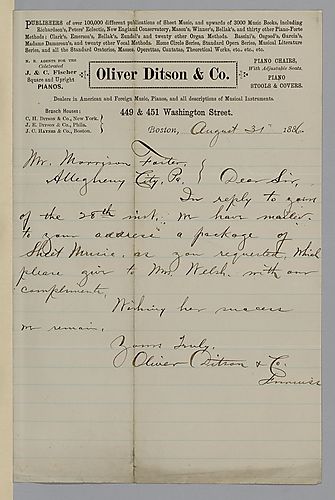 PUBLISHERS of over 100,000 different publications of Sheet Music, and upwards of 3000 Music Books, including
Richardson's, Peters' Eclectic, New England Conservatory, Mason's, Winner's, Bellak's, and thirty other Piano-Forte
Methods; Clark's, Emerson's, Bellak's, Zundel's and twenty other Organ Methods. Bassini's, Osgood's, Garcia's,
Madame Damoreau's, and twenty other Vocal Methods. Home Circle Series, Standard Opera Series, Musical Literature
Series, and all the Standard Oratorios, Masses, Operettas, Cantatas, Theoretical Works, etc., etc., etc.
N. E. AGENTS FOR THE
Celebrated
J. & C. Fischer
Square and Upright
PIANOS.
Oliver Ditson & Co.
PIANO CHAIRS,
With Adjustable Seats.
PIANO
STOOLS & COVERS.
Dealers in American and Foreign Music, Pianos, and all descriptions of Musical Instruments.
Branch Houses:
C. H. DITSON & CO., New York.
J. E. DITSON & CO., Phila.
J. C. HAYNES & CO., Boston.
449 & 451 Washington Street.
Boston, August 31st 1886
Mr. Morrison Foster,
Allegheny City, Pa. Dear Sir,
In reply to yours
of the 28th inst. We have mailed
to your address a package of
Sheet Music, as you requested, which
please give to Mrs. Welsh, with our
compliments.
Wishing her success
we remain,
Yours Truly,
Oliver Ditson & Co.